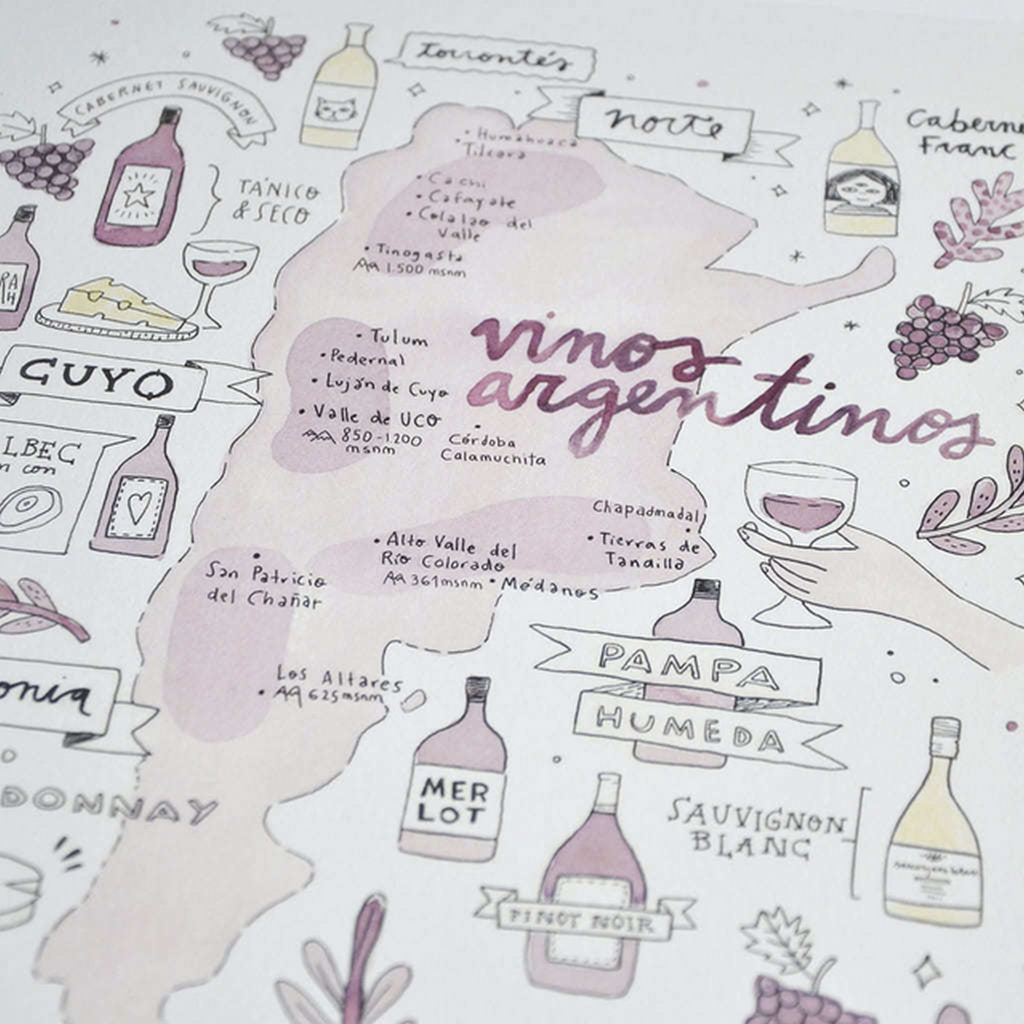 Torrontés
norte
CABERNET SAUVIGNON
Caberne
Franc
TÁNICO
& SECO
• Humahuaca
• Tilcara
• Cachi
• Cafayate
• Colalao del
Valle
• Tinogasta
1.500 msnm
vinos
argentinos
• Tulum
• Pedernal
• Luján de Cuyo
• Valle de UCO
850-1.200
msnm
Córdoba
Calamuchita
RA
H
CUYO
LBEC
n con
Chapadmadal
• Tierras de
Tandilla
• Alto Valle del
Río Colorado
361msnm
• Médanos
San Patricio
del Chañar
Los Altares
• 625msnm
PAMPA
HUMEDA
onia
DONNAY
MER
LOT
SAUVIGNON
BLANC
PINOT NOIR